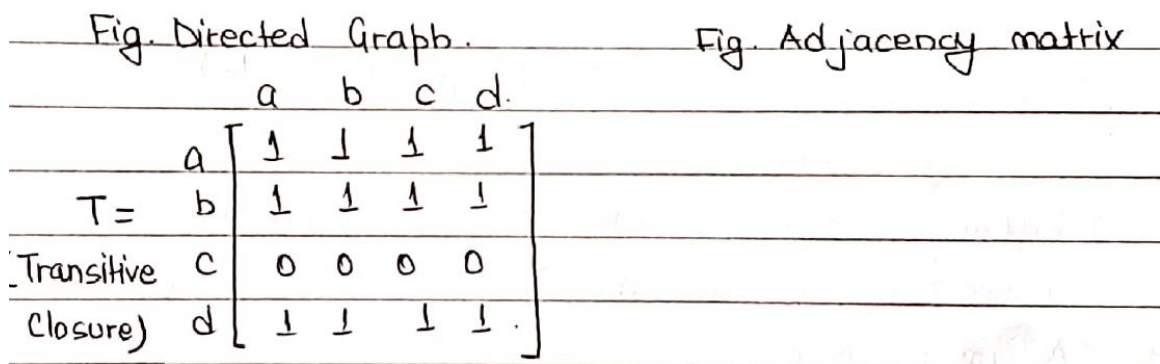 Fig. Directed Graph. Fig. Adjacency matrix
a b c d.
a 1 1 1 1
T= b 1 1 1 1
(Transitive c 0 0 0 0
Closure) d 1 1 1 1 .